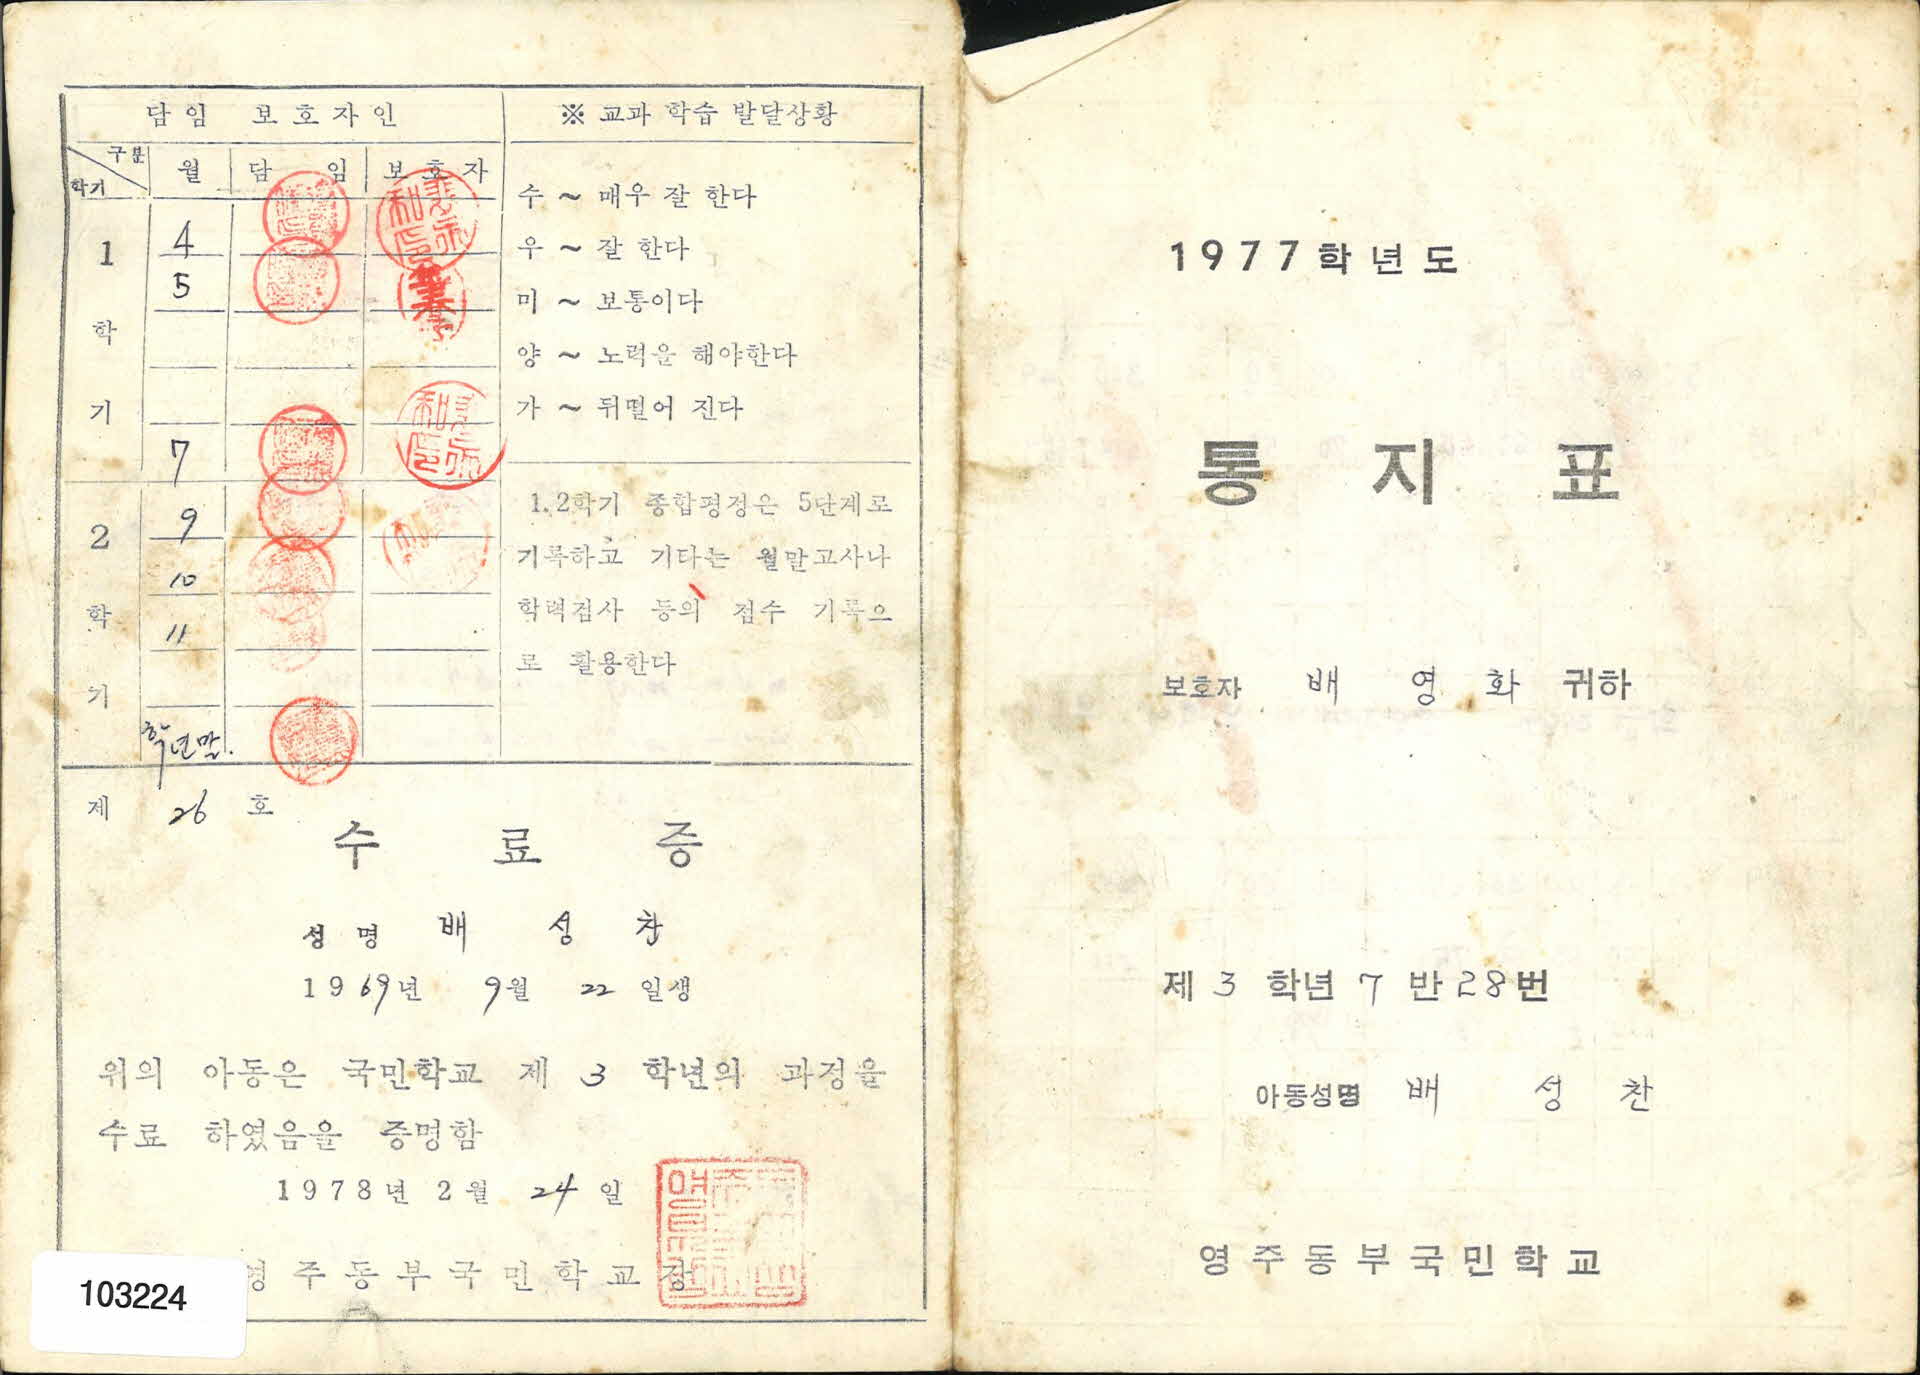 담임 보호자인
※ 교과 학습 발달상황
구분
학기
월 담 임 보호자
1학기
4
5
7
2학기
9
10
11
학년말.
수 ~ 매우 잘 한다
우 ~ 잘 한다
미 ~ 보통이다
양 ~ 노력을 해야한다
가 ~ 뒤떨어 진다
1.2학기 종합평정은 5단계로
기록하고 기타는 월말고사나
학력검사 등의 점수 기록으
로 활용한다
제 26 호
수 료 증
성 명 배 성 찬
1969년 9월 22 일생
위의 아동은 국민학교 제 3 학년의 과정을
수료 하였음을 증명함
1978년 2월 24 일
영주동부국민학교장
103224
1977학년도
통 지 표
보호자 배 영 화 귀하
제 3 학년 7 반 28번
아동성명 배 성 찬
영주동부국민학교